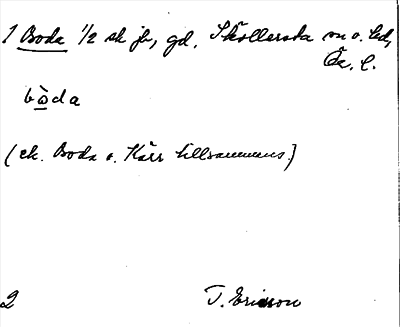 1 Boda 1/2 sk jb, gd, Sköllersta sn o. hd,
Ök. l.
bò̲da
(ek. Boda o. Kärr tillsammans.)
2 T. Ericson